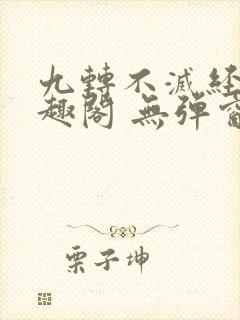 九轉不滅経
趣閣 無彈窗
栗子坤